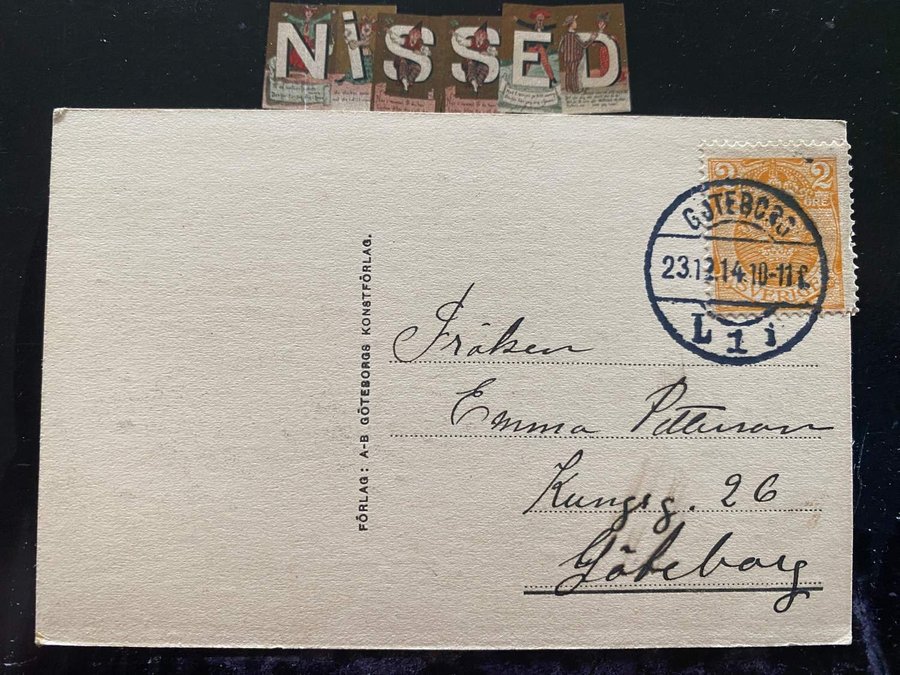 NISSED
2 2
ÖRE
SVERIGE
GÖTEBORG
23.12.14.10-11 f.
L 1 i
FÖRLAG: A-B GÖTEBORGS KONSTFÖRLAG.
Fröken
Emma Petterson
Kungsg. 26
Göteborg